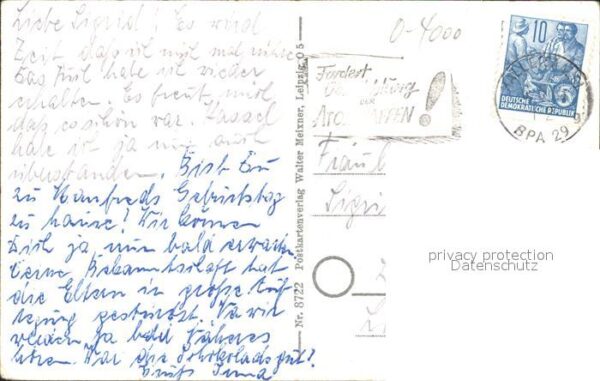 Liebe Sigrid! Es wird
Zeit daß ich mich mal rühre
Das habe ich wieder
erhalten. Es freut mich
daß es schön war. Kassel
habe ich ja nun auch
überstanden. Bist Du
zu Manfreds Geburtstag
zu hause! Wir können
Dich ja nun bald erwarten
Deine Bekanntschaft hat
die Eltern in große Auf-
regung gestürzt. Na wir
werden ja bald Näheres
hören. War die Schokolade gut?
Inna
Nr. 8722 Postkartenverlag Walter Meixner, Leipzig O 5
0-4000
Fordert
DER
ATOMWAFFEN!
10
DEUTSCHE
DEMOKRATISCHE REPUBLIK
5
BPA 29
Fräul
Sigri
privacy protection
Datenschutz